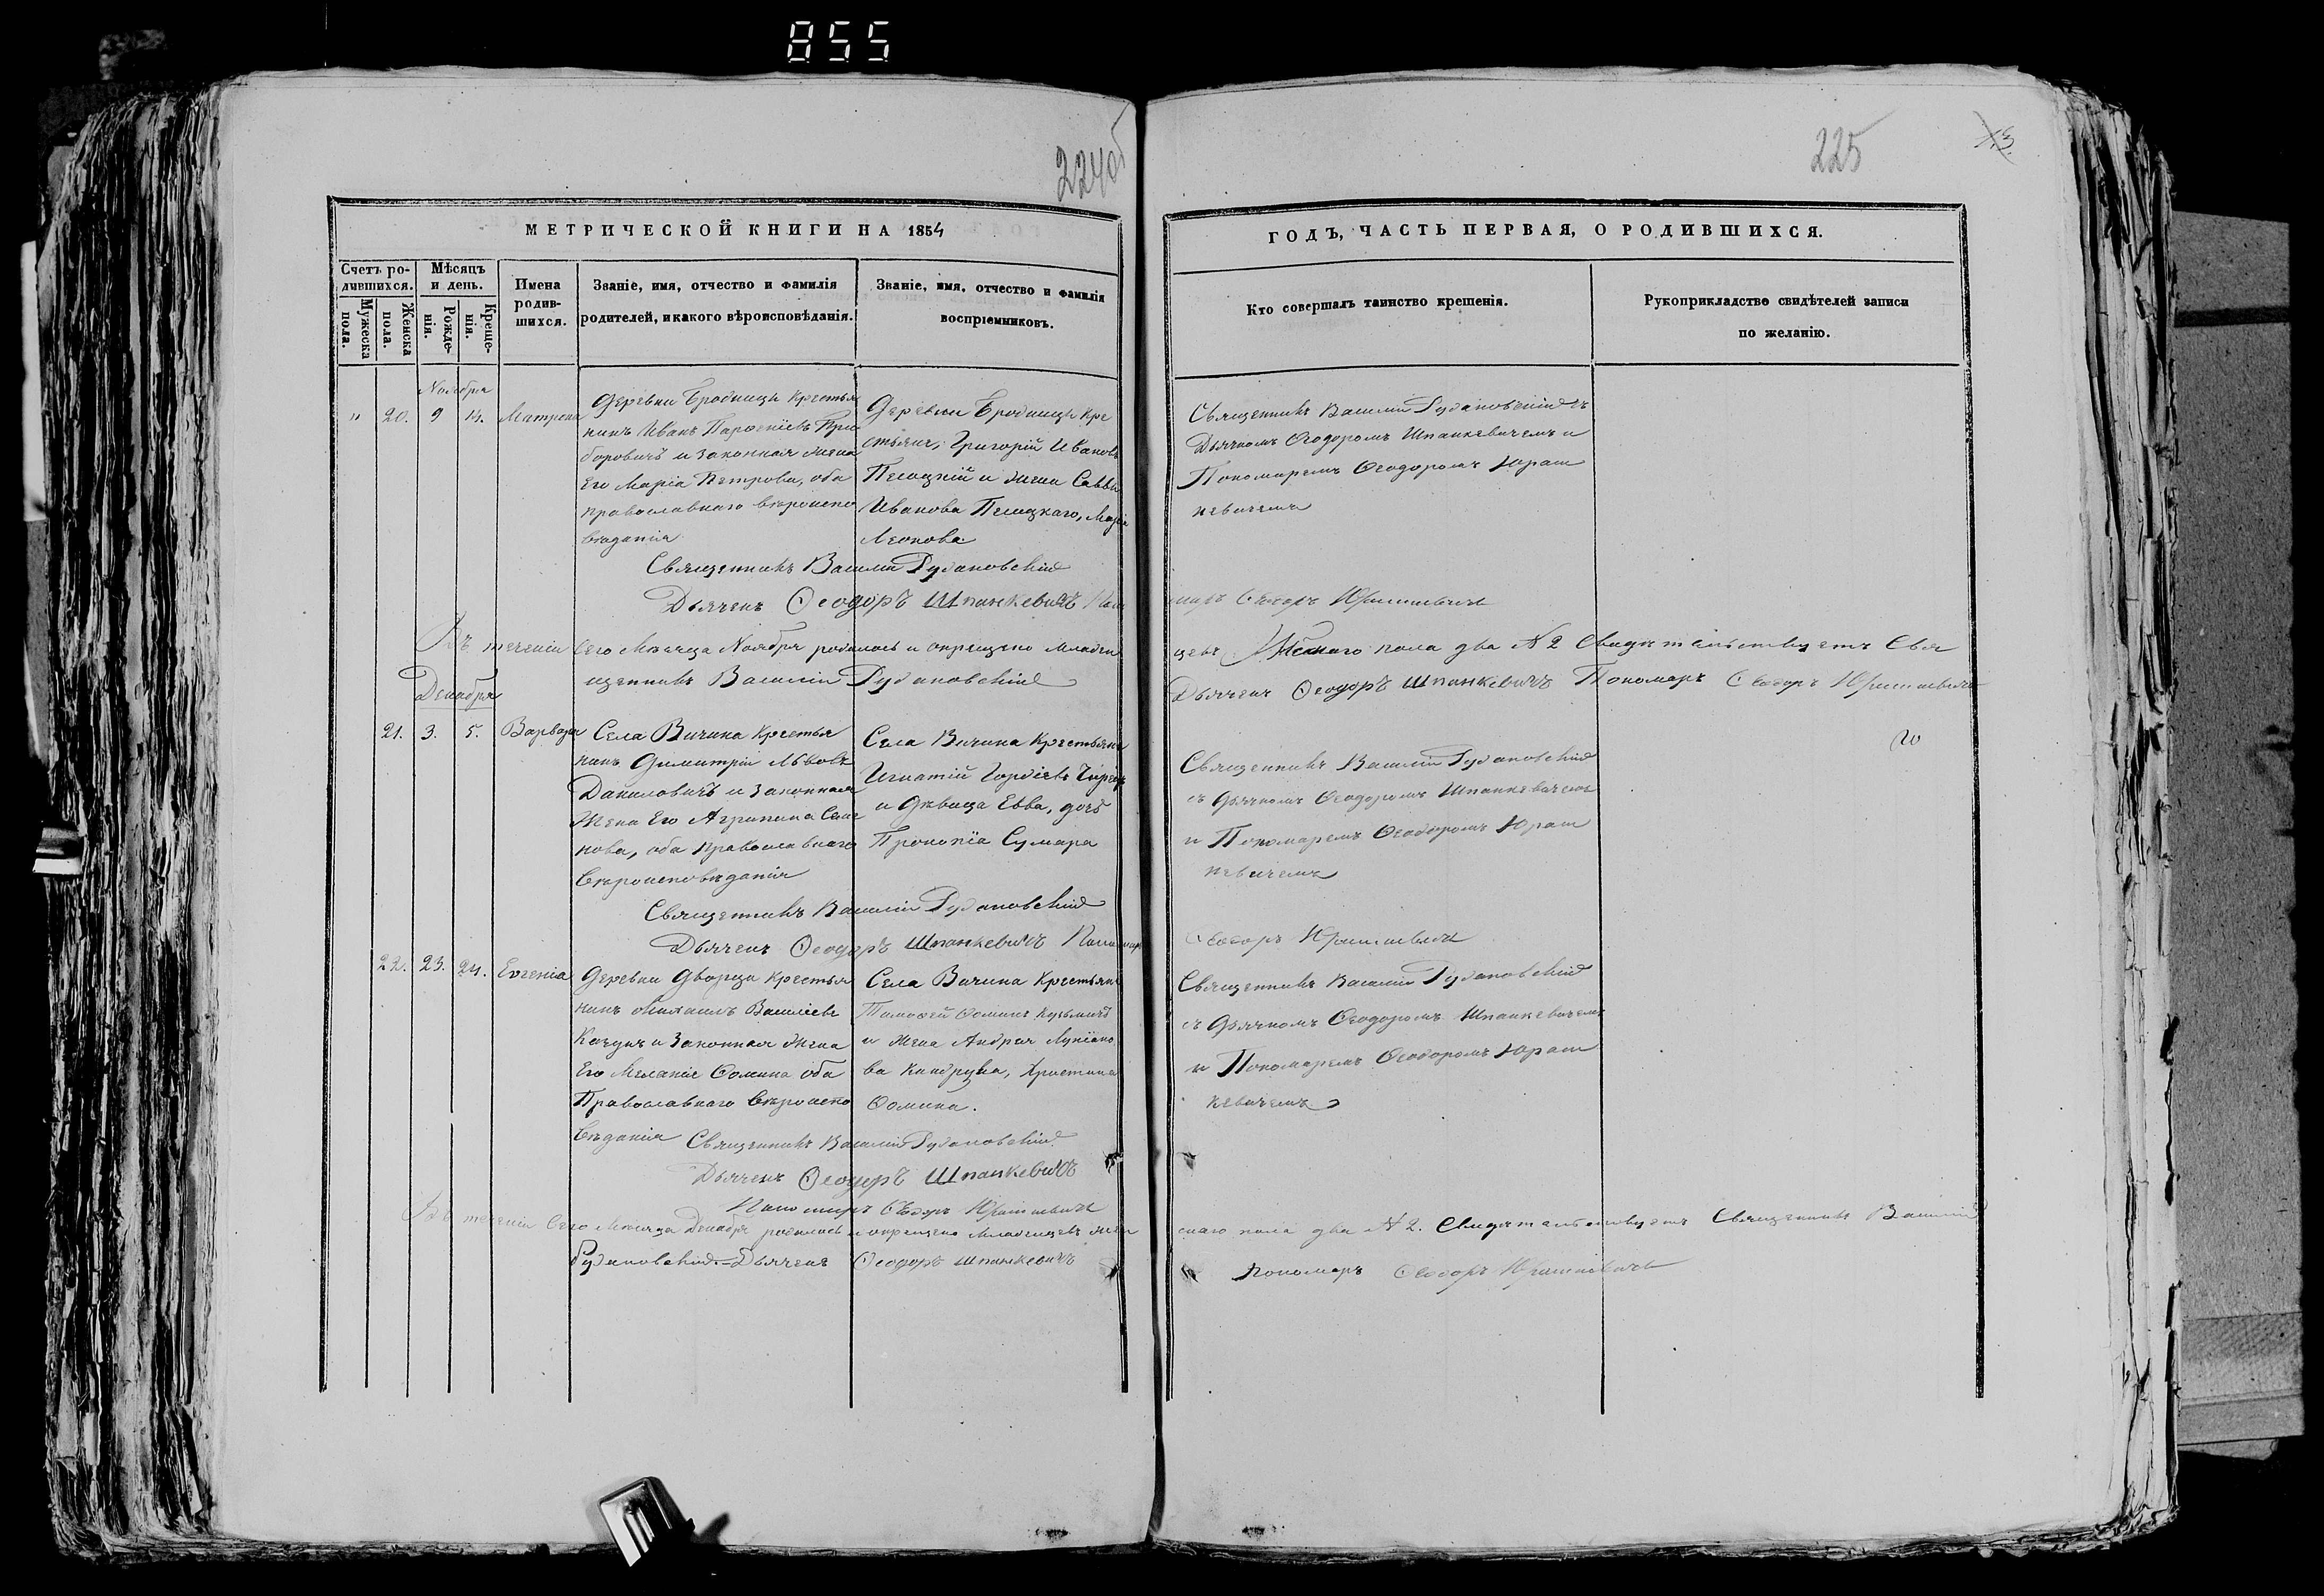 855
224об
225
МЕТРИЧЕСКОЙ КНИГИ НА 1854
ГОДЪ, ЧАСТЬ ПЕРВАЯ, О РОДИВШИХСЯ.
Счетъ ро-
дившихся.
Мужеска
пола.
Женска
пола.
Мѣсяцъ
и день.
Рожде-
нія.
Креще-
нія.
Имена
родив-
шихся.
Званіе, имя, отчество и фамилія
родителей, и какого вѣроисповѣданія.
Званіе, имя, отчество и фамилія
воспріемниковъ.
Кто совершалъ таинство крещенія.
Рукоприкладство свидѣтелей записи
по желанію.
Ноября
" 20. 9 14. Матрона
Деревни Бродницы Крестья
нинъ Иванъ Парѳеніевъ Гри
боровичъ и законная жена
Его Марія Петрова, оба
православнаго вѣроиспо
вѣданія
Деревни Бродницы Кре
стьяне, Григорій Ивановъ
и жена Саввы
Иванова
Леонова
Священникъ Василій Гудановскій съ
Дьячкомъ Ѳеодоромъ Шпанкевичемъ и
Пономаремъ Ѳеодоромъ Юраш
кевичемъ
Священникъ Василій Гудановскій
Дьячекъ Ѳеодоръ Шпанкевичъ Поно
маръ Ѳеодоръ Юрашкевичъ
Въ теченіи Сего Мѣсяца Ноября родилось и окрещено Младен
цевъ Женскаго пола два № 2 Свидѣтельствуетъ Свя
щенникъ Василій Гудановскій
Дьячекъ Ѳеодоръ Шпанкевичъ Пономаръ Ѳеодоръ Юрашкевичъ
Декабря
21. 3. 5. Варвара
Села Вичина Крестья
нинъ Димитрій Львовъ
Даниловичъ и законная
Жена Его Агрипина Семе
нова, оба православнаго
Вѣроисповѣданія
Села Вичина Крестьянинъ
Игнатій Гордіевъ
и Дѣвица Евва, дочь
Прокопія Сумара
Священникъ Василій Гудановскій
съ Дьячкомъ Ѳеодоромъ Шпанкевичемъ
и Пономаремъ Ѳеодоромъ Юраш
кевичемъ
Священникъ Василій Гудановскій
Дьячекъ Ѳеодоръ Шпанкевичъ Пономаръ
Ѳеодоръ Юрашкевичъ
22. 23. 24. Евгенія
Деревни Дворца Крестья
нинъ Михаилъ Василіевъ
и Законная Жена
Его Меланіе Ѳомина оба
Православнаго Вѣроиспо
вѣданія
Села Вичина Крестьяне
Тимоѳей Ѳоминъ Кузьмичъ
и Жена Андрея Лукіано
ва Христина
Ѳомина.
Священникъ Василій Гудановскій
съ Дьячкомъ Ѳеодоромъ Шпанкевичемъ
и Пономаремъ Ѳеодоромъ Юраш
кевичемъ
Священникъ Василій Гудановскій
Дьячекъ Ѳеодоръ Шпанкевичъ
Пономаръ Ѳеодоръ Юрашкевичъ
Въ теченіи Сего Мѣсяца Декабря родилось и окрещено Младенцевъ жен
скаго пола два № 2. Свидѣтельствуетъ Священникъ Василій
Гудановскій. Дьячекъ Ѳеодоръ Шпанкевичъ
Пономаръ Ѳеодоръ Юрашкевичъ